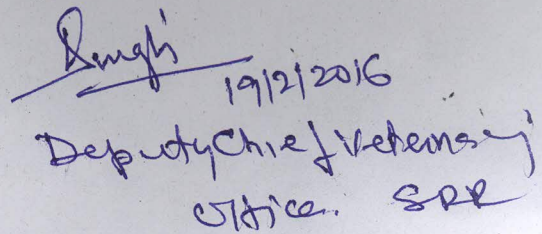 Singh
19/2/2016
Deputy Chief Veterinary
Office. SRR